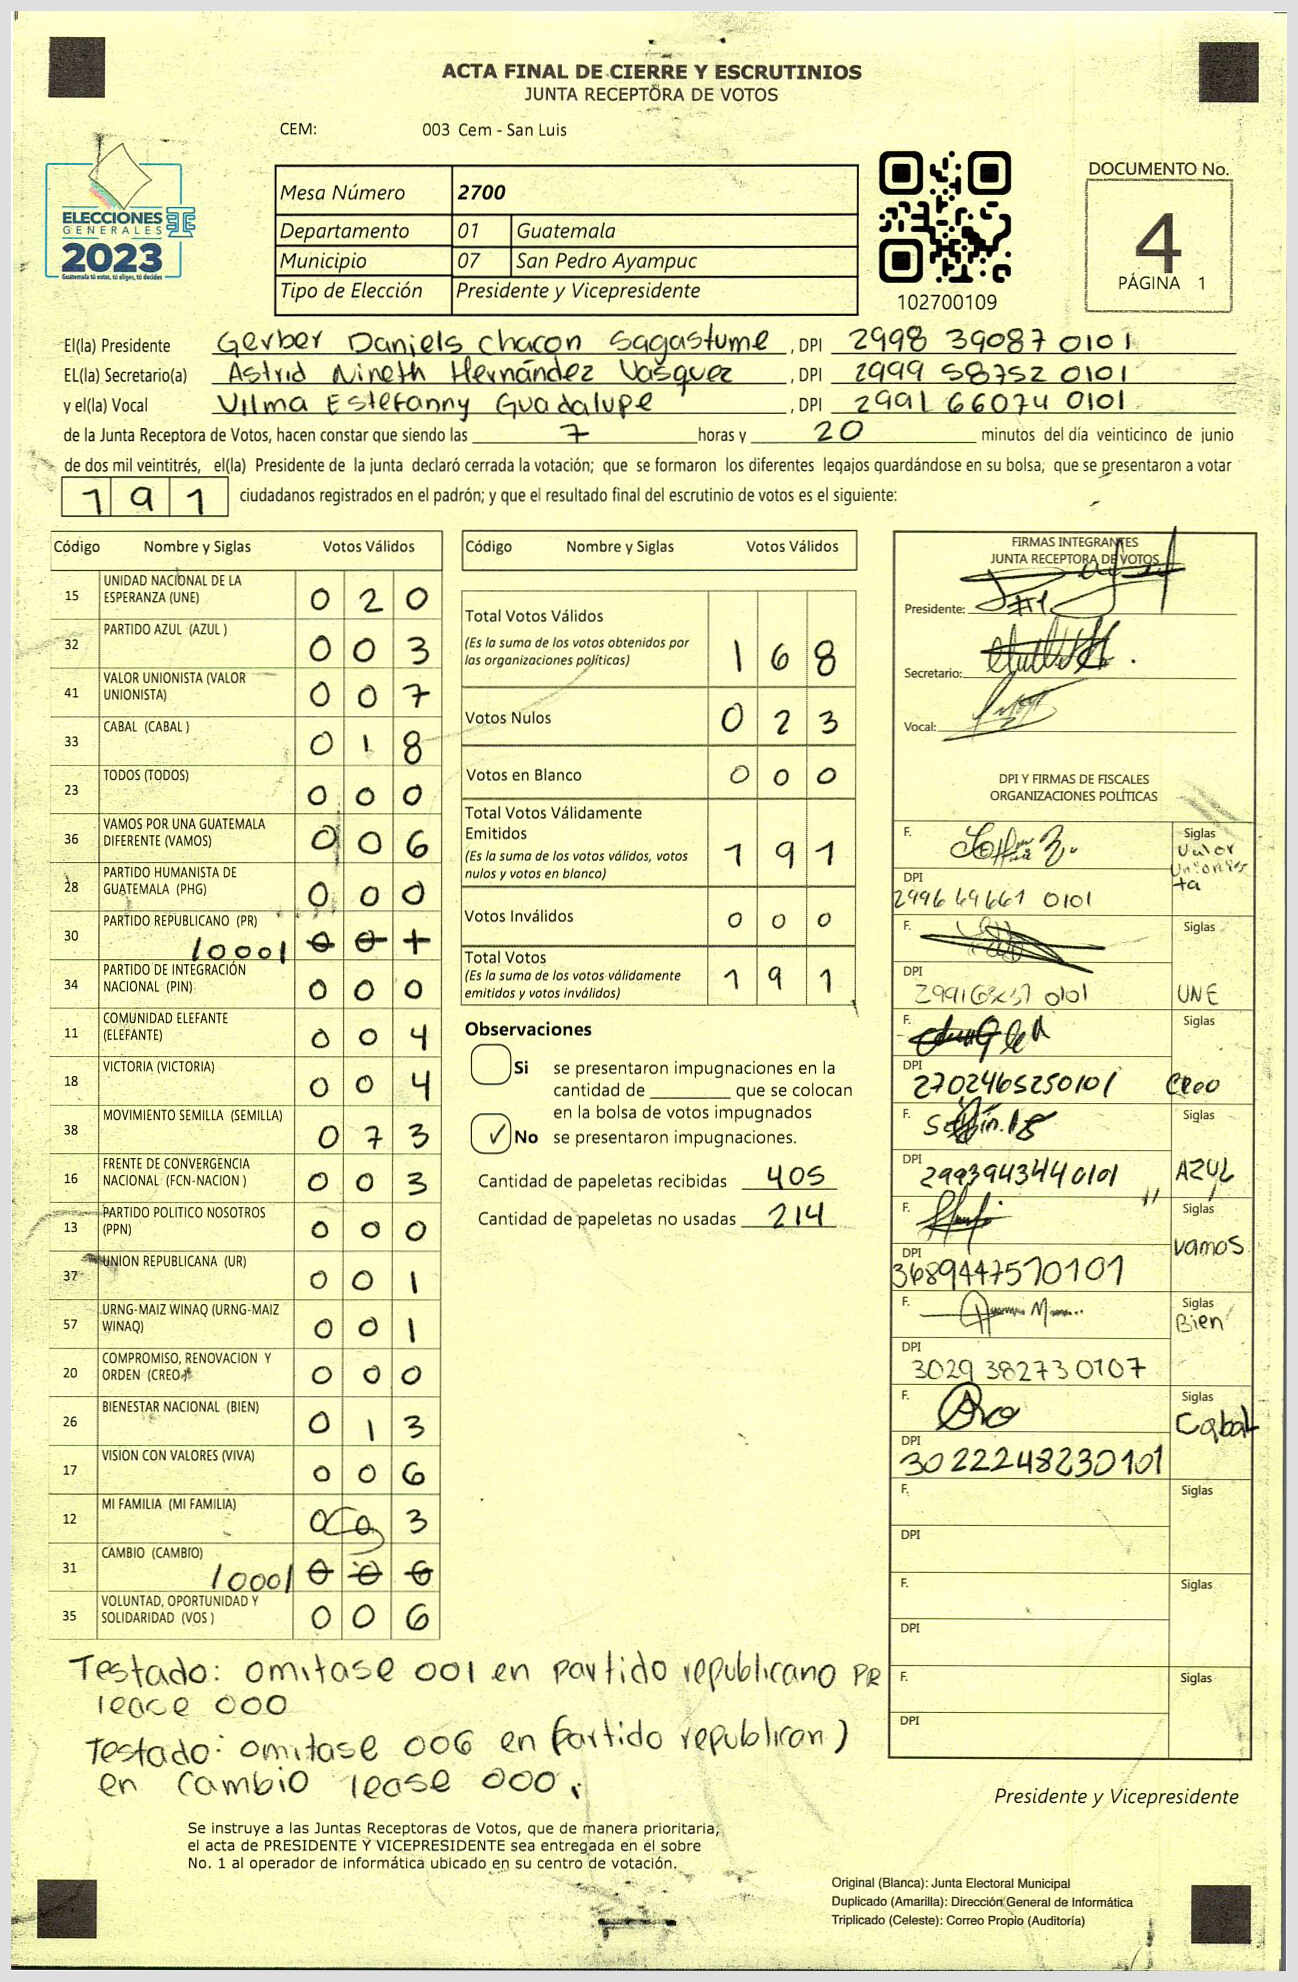 ACTA FINAL DE CIERRE Y ESCRUTINIOS
JUNTA RECEPTORA DE VOTOS
CEM: 003 Cem - San Luis
ELECCIONES
GENERALES
2023
Guatemala tú votas, tú eliges, tú decides
Mesa Número 2700
Departamento 01 Guatemala
Municipio 07 San Pedro Ayampuc
Tipo de Elección Presidente y Vicepresidente
102700109
DOCUMENTO No.
4
PÁGINA 1
El(la) Presidente Gerber Daniels Chacon Sagastume , DPI 2998 39087 0101
EL(la) Secretario(a) Astrid Nineth Hernández Vasquez , DPI 2999 58752 0101
y el(la) Vocal Vilma Estefanny Guadalupe , DPI 2991 66074 0101
de la Junta Receptora de Votos, hacen constar que siendo las 7 horas y 20 minutos del día veinticinco de junio
de dos mil veintitrés, el(la) Presidente de la junta declaró cerrada la votación; que se formaron los diferentes legajos guardándose en su bolsa, que se presentaron a votar
191 ciudadanos registrados en el padrón; y que el resultado final del escrutinio de votos es el siguiente:
Código Nombre y Siglas Votos Válidos
15 UNIDAD NACIONAL DE LA
ESPERANZA (UNE) 0 2 0
32 PARTIDO AZUL (AZUL ) 0 0 3
41 VALOR UNIONISTA (VALOR
UNIONISTA) 0 0 7
33 CABAL (CABAL ) 0 1 8
23 TODOS (TODOS) 0 0 0
36 VAMOS POR UNA GUATEMALA
DIFERENTE (VAMOS) 0 0 6
28 PARTIDO HUMANISTA DE
GUATEMALA (PHG) 0 0 0
30 PARTIDO REPUBLICANO (PR)
10001 0 0 1
34 PARTIDO DE INTEGRACIÓN
NACIONAL (PIN) 0 0 0
11 COMUNIDAD ELEFANTE
(ELEFANTE) 0 0 4
18 VICTORIA (VICTORIA) 0 0 4
38 MOVIMIENTO SEMILLA (SEMILLA) 0 7 3
16 FRENTE DE CONVERGENCIA
NACIONAL (FCN-NACION ) 0 0 3
13 PARTIDO POLITICO NOSOTROS
(PPN) 0 0 0
37 UNION REPUBLICANA (UR) 0 0 1
57 URNG-MAIZ WINAQ (URNG-MAIZ
WINAQ) 0 0 1
20 COMPROMISO, RENOVACION Y
ORDEN (CREO) 0 0 0
26 BIENESTAR NACIONAL (BIEN) 0 1 3
17 VISION CON VALORES (VIVA) 0 0 6
12 MI FAMILIA (MI FAMILIA) 0 0 3
31 CAMBIO (CAMBIO)
10001 0 0 6
35 VOLUNTAD, OPORTUNIDAD Y
SOLIDARIDAD (VOS ) 0 0 6
Código Nombre y Siglas Votos Válidos
Total Votos Válidos
(Es la suma de los votos obtenidos por
las organizaciones políticas) 1 6 8
Votos Nulos 0 2 3
Votos en Blanco 0 0 0
Total Votos Válidamente
Emitidos
(Es la suma de los votos válidos, votos
nulos y votos en blanco) 1 9 1
Votos Inválidos 0 0 0
Total Votos
(Es la suma de los votos válidamente
emitidos y votos inválidos) 1 9 1
Observaciones
Si se presentaron impugnaciones en la
cantidad de ________ que se colocan
en la bolsa de votos impugnados
✓ No se presentaron impugnaciones.
Cantidad de papeletas recibidas 405
Cantidad de papeletas no usadas 214
FIRMAS INTEGRANTES
JUNTA RECEPTORA DE VOTOS
Presidente:
Secretario:
Vocal:
DPI Y FIRMAS DE FISCALES
ORGANIZACIONES POLÍTICAS
F. Siglas
Valor
Unionis
ta
DPI
2996 69661 0101
F. Siglas
DPI
0101 UNE
F. Siglas
DPI
2702465250101 Creo
F. Siglas
DPI
2993943440101 AZUL
F. Siglas
DPI
3689447570101 vamos
F. Siglas
Bien
DPI
3029 38273 0107
F. Siglas
Cabal
DPI
3022248230101
F. Siglas
DPI
F. Siglas
DPI
F. Siglas
DPI
Testado: omitase 001 en partido republicano PR
lease 000
Testado: omitase 006 en (partido republican)
en cambio lease 000.
Presidente y Vicepresidente
Se instruye a las Juntas Receptoras de Votos, que de manera prioritaria,
el acta de PRESIDENTE Y VICEPRESIDENTE sea entregada en el sobre
No. 1 al operador de informática ubicado en su centro de votación.
Original (Blanca): Junta Electoral Municipal
Duplicado (Amarilla): Dirección General de Informática
Triplicado (Celeste): Correo Propio (Auditoría)